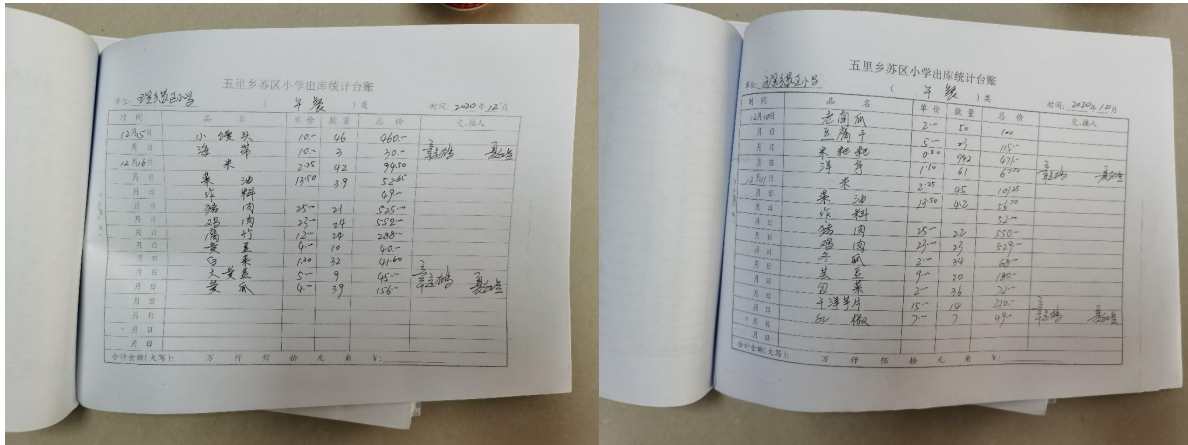 五里乡苏区小学出库统计台账
单位: 五里乡苏区小学 ( 午餐 )类 时间: 2020年12月
时间 品名 单价 数量 总价 交、接人
12月15日 小馒头 10.- 46 460.-
月 日 海带 10.- 3 30.-
12月16日 米 2.25 42 94.50
月 日 菜油 13.50 3.9 52.65
月 日 作料 49.-
月 日 猪肉 25.- 21 525.-
月 日 鸡肉 23.- 24 552.-
月 日 腐竹 12.- 24 288.-
月 日 黄豆 4.- 10 40.-
月 日 白菜 1.30 32 41.60
月 日 大黄豆 5.- 9 45.-
月 日 黄瓜 4.- 39 156.-
月 日
月 日
月 日
月 日
合计金额(大写): 万 仟 佰 拾 元 角 ¥:
五里乡苏区小学出库统计台账
单位: 五里乡苏区小学 ( 午餐 )类 时间: 2020年12月
时间 品名 单价 数量 总价 交、接人
12月10日 老南瓜 2.- 50 100
月 日 豆腐干 5.- 23 115.-
月 日 米粑粑 0.50 942 471.-
月 日 洋芋 1.10 61 67.10
12月11日 米 2.25 45 101.25
月 日 菜油 13.50 4.2 56.70
月 日 作料 52.-
月 日 猪肉 25.- 22 550.-
月 日 鸡肉 23.- 23 529.-
月 日 瓜 2.- 34 68.-
月 日 豆 9.- 20 180.-
月 日 包菜 2.- 36 72.-
月 日 干洋芋片 15.- 14 210.-
月 日 红椒 7.- 7 49.-
月 日
月 日
合计金额(大写): 万 仟 佰 拾 元 角 ¥: